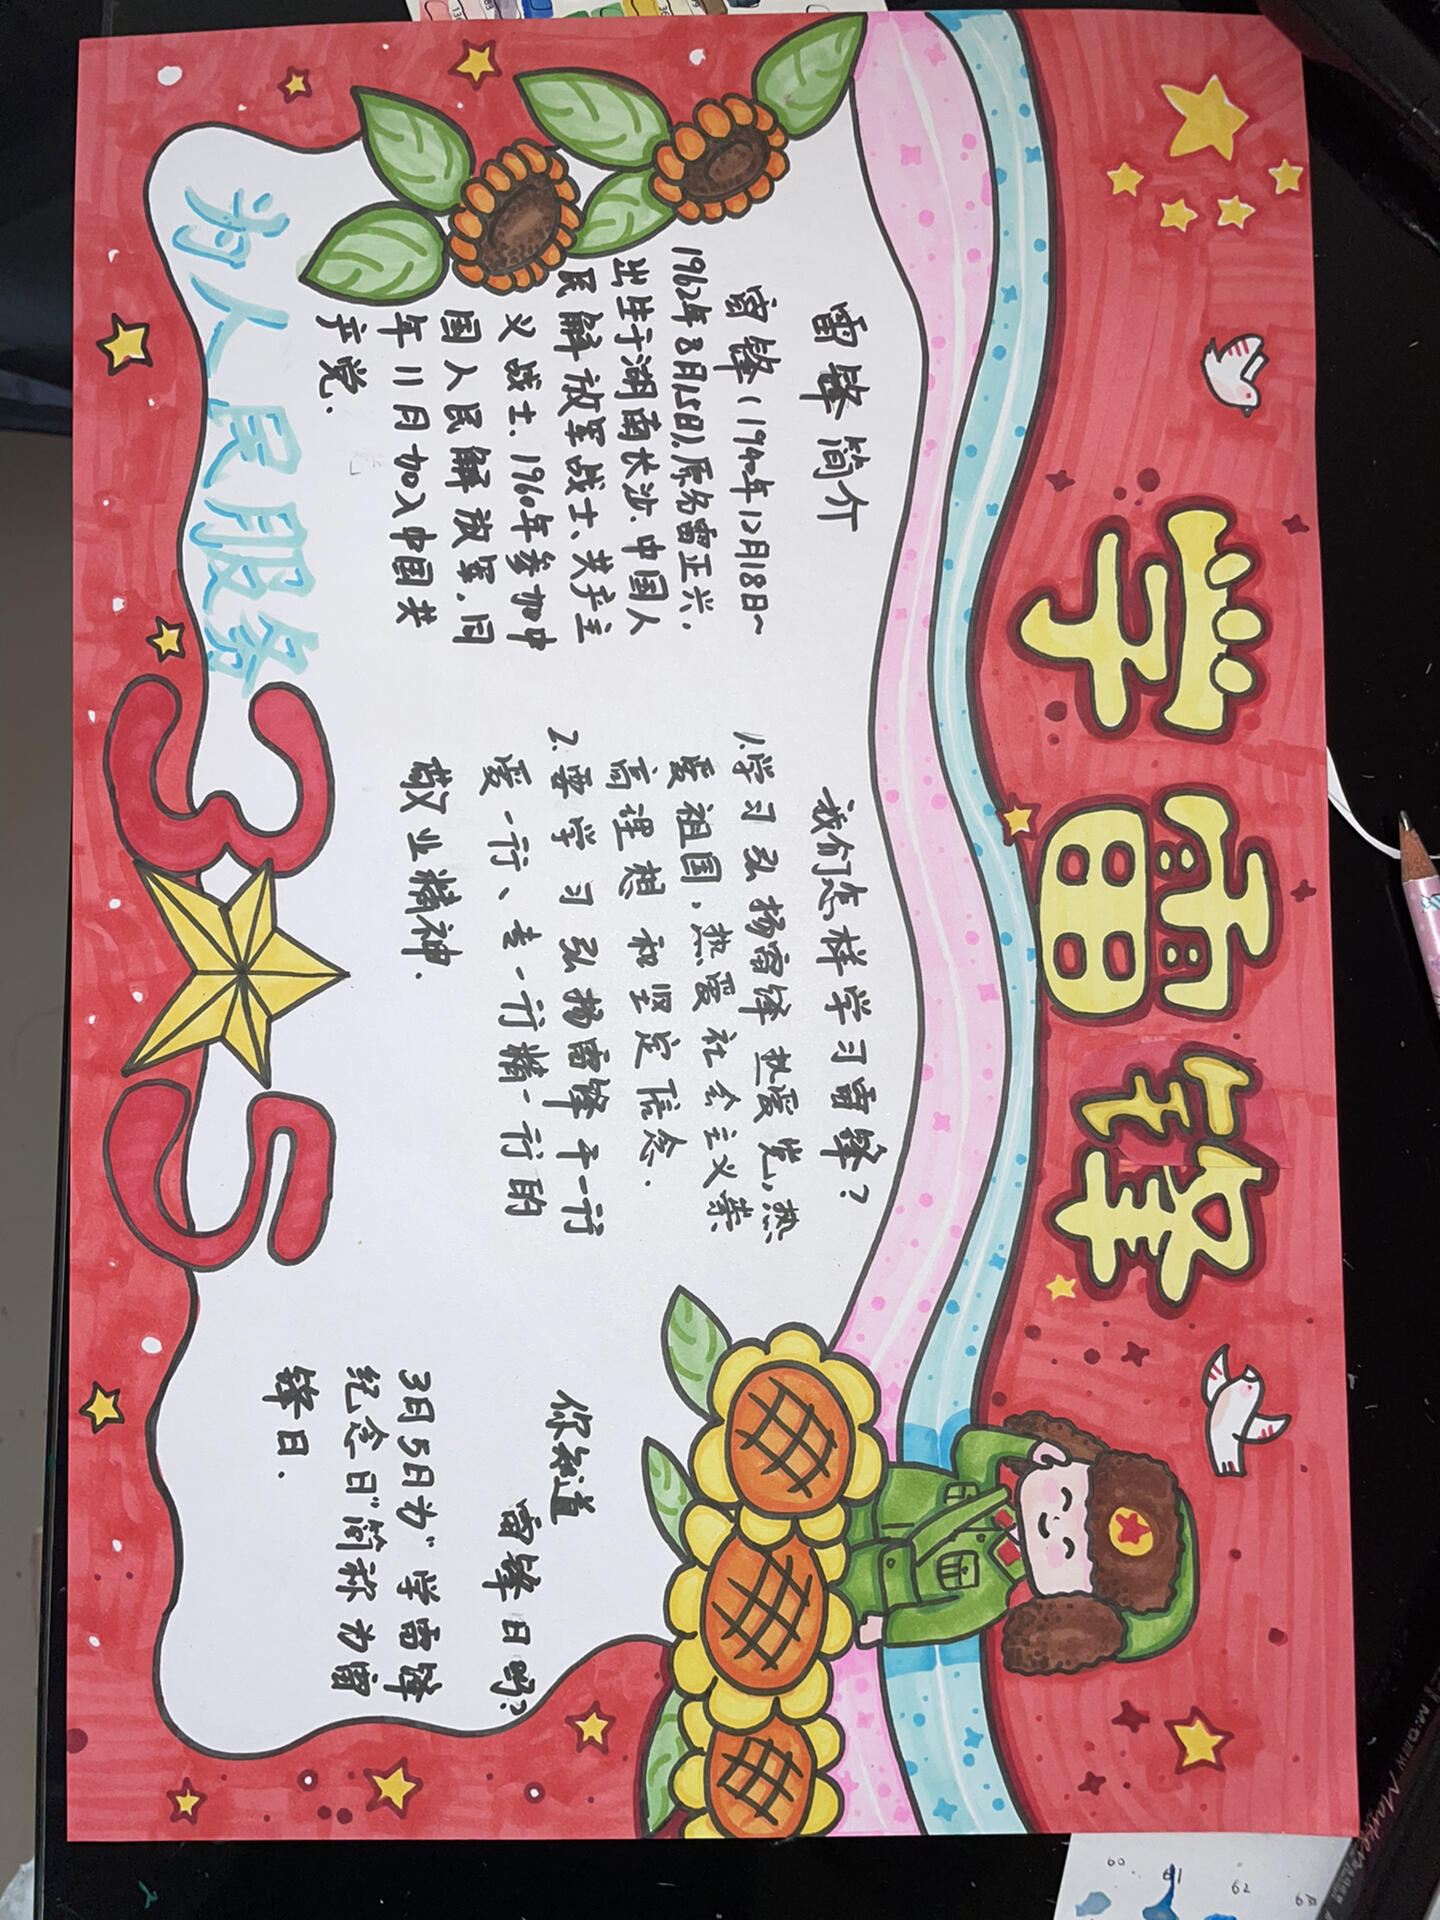 学雷锋
雷锋简介
雷锋(1940年12月18日~
1962年8月15日),原名雷正兴,
出生于湖南长沙,中国人
民解放军战士、共产主
义战士,1960年参加中
国人民解放军,同
年11月加入中国共
产党.
我们怎样学习雷锋?
1.学习弘扬雷锋热爱党,热
爱祖国,热爱社会主义崇
高理想和坚定信念.
2.要学习弘扬雷锋干一行
爱一行、专一行精一行的
敬业精神.
你知道
雷锋日吗?
3月5日为"学雷锋
纪念日"简称为雷
锋日.
为人民服务
3 5
60 61 62 63